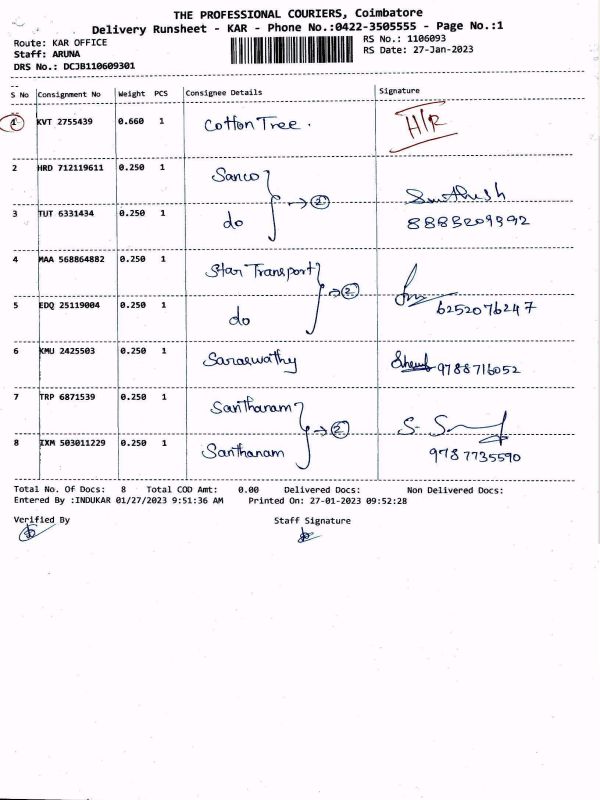 THE PROFESSIONAL COURIERS, Coimbatore
Delivery Runsheet - KAR - Phone No.:0422-3505555 - Page No.:1
Route: KAR OFFICE RS No.: 1106093
Staff: ARUNA RS Date: 27-Jan-2023
DRS No.: DCJB110609301
S No Consignment No Weight PCS Consignee Details Signature
1 KVT 2755439 0.660 1 Cotton Tree. H/R
2 HRD 712119611 0.250 1 Sanco
→ 2
3 TUT 6331434 0.250 1 do 8883209992
4 MAA 568864882 0.250 1 Star Transport
→ 2
5 EDQ 25119004 0.250 1 do 6252076247
6 KMU 2425503 0.250 1 Saraswathy 9788716052
7 TRP 6871539 0.250 1 Santhanam
→ 2
8 IXM 503011229 0.250 1 Santhanam 9787735590
Total No. Of Docs: 8 Total COD Amt: 0.00 Delivered Docs: Non Delivered Docs:
Entered By :INDUKAR 01/27/2023 9:51:36 AM Printed On: 27-01-2023 09:52:28
Verified By Staff Signature